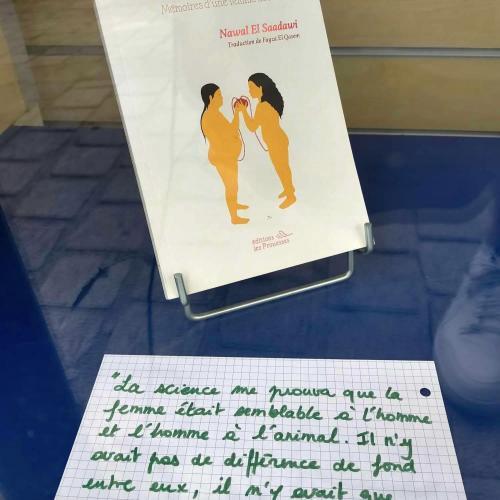 Mémoires d'une femme
Nawal El Saadawi
Traduction de Fayza El Qasem
éditions
des Princesses
"La science me prouva que la
femme était semblable à l'homme
et l'homme à l'animal. Il n'y
avait pas de différence de fond
entre eux, il n'y avait que